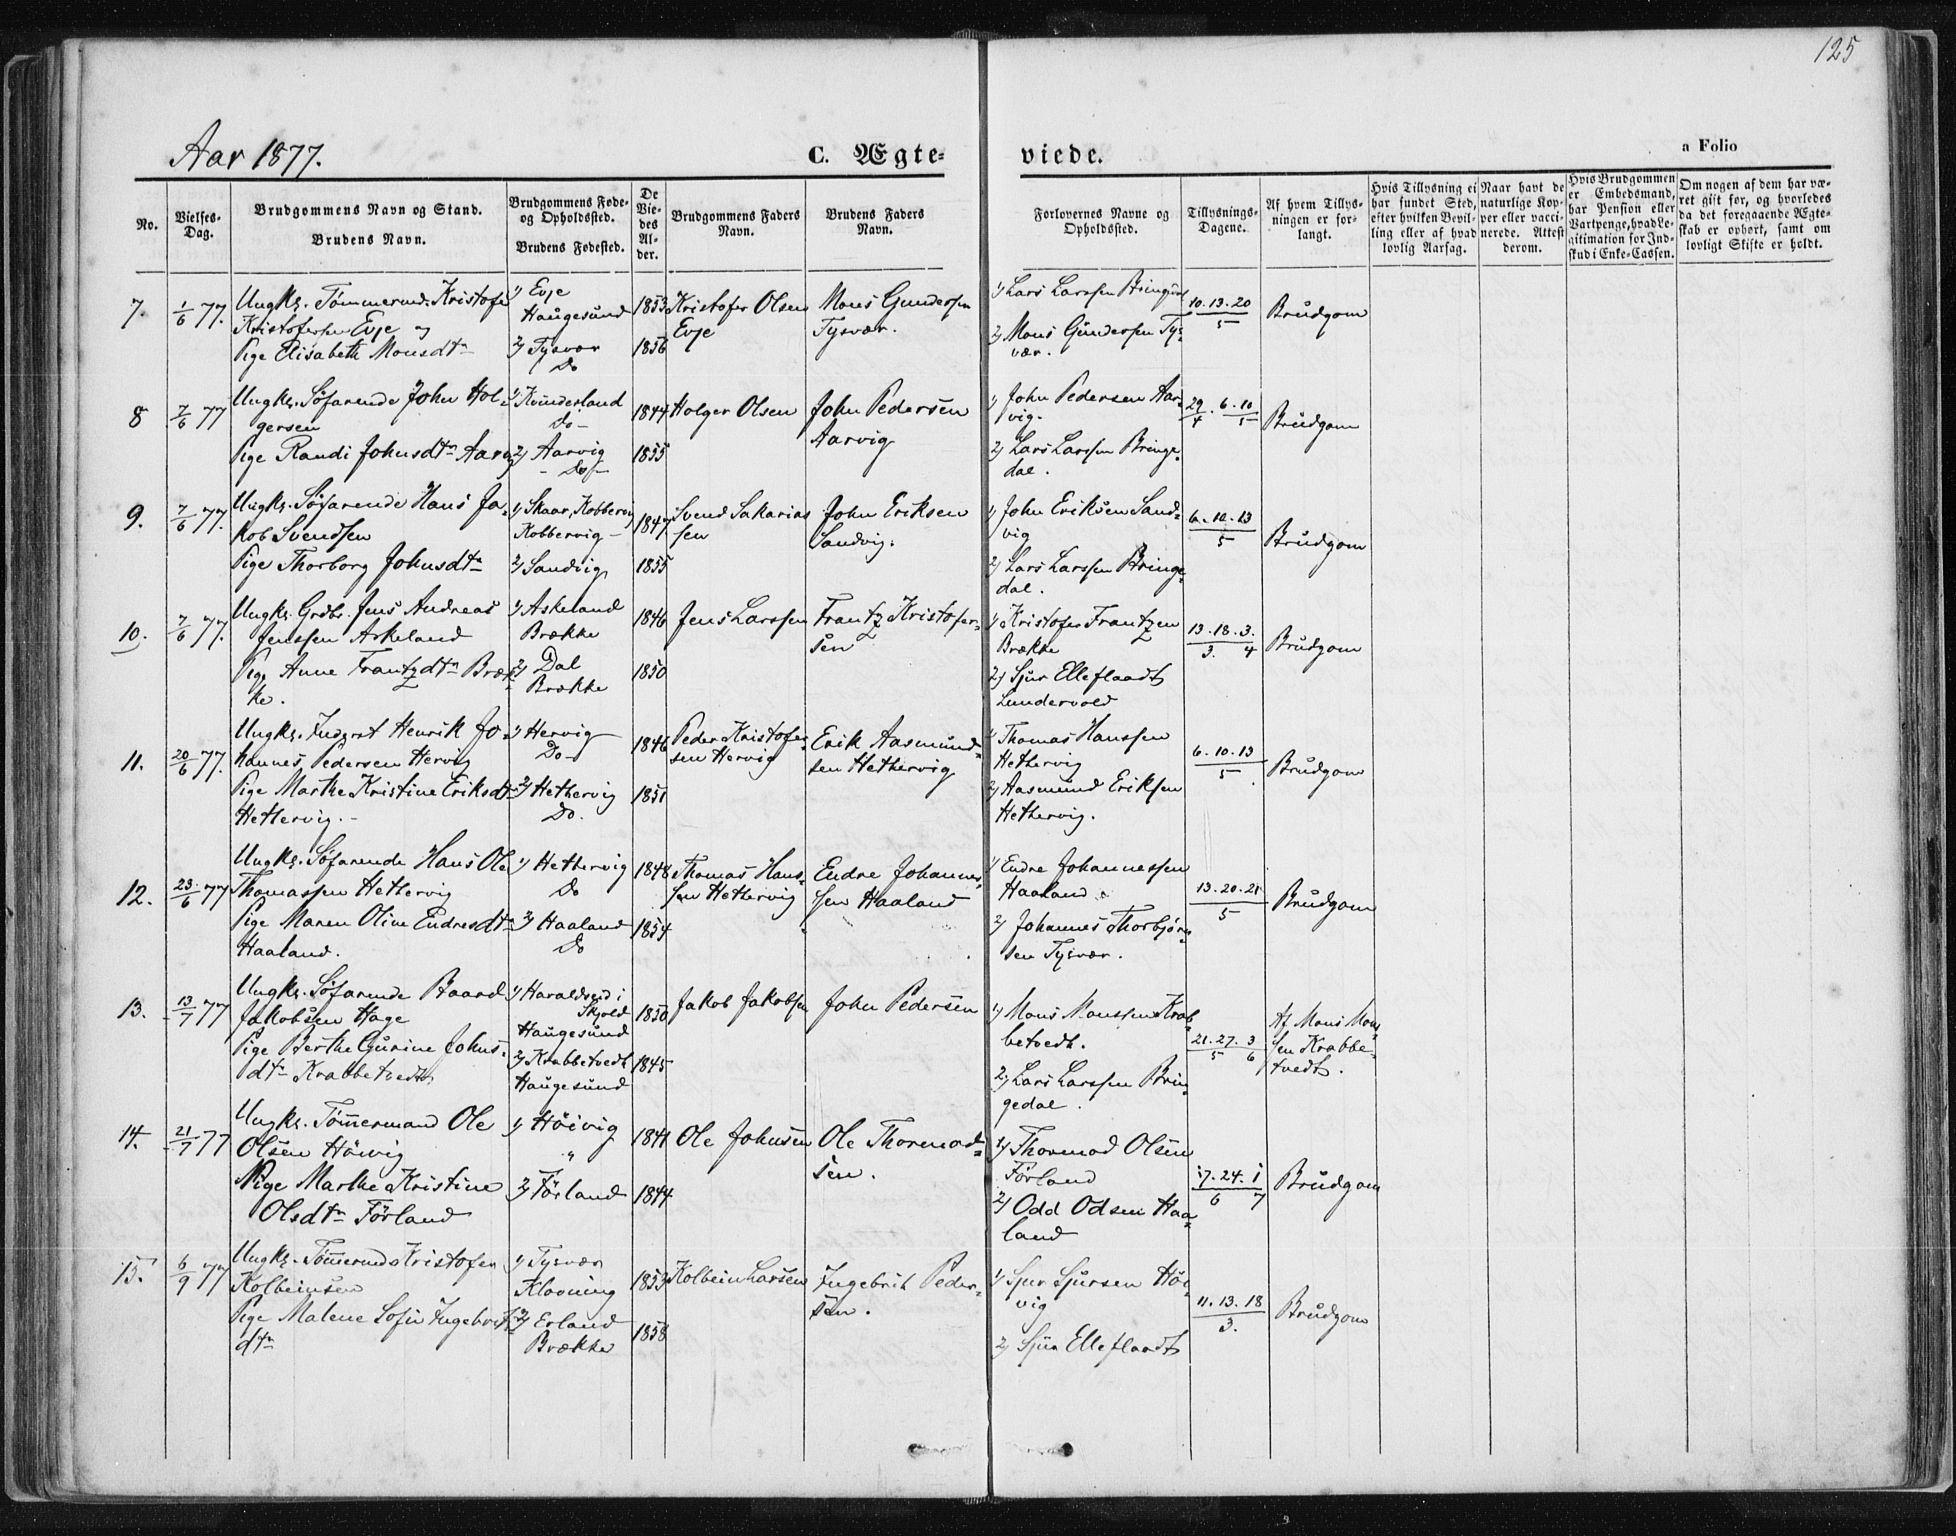 125
Aar 1877.
C. Ægte-
viede.
a Folio
No.
Vielses-
Dag.
Brudgommens Navn og Stand.
Brudens Navn.
Brudgommens Føde-
og Opholdssted.
Brudens Fødested.
De
Vie-
des
Al-
der.
Brudgommens Faders
Navn.
Brudens Faders
Navn.
Forlovernes Navne og
Opholdssted.
Tillysnings-
Dagene.
Af hvem Tillys-
ningen er for-
langt.
Hvis Tillysning ei
har fundet Sted,
efter hvilken Bevil-
ling eller af hvad
lovlig Aarsag.
Naar havt de
naturlige Kop-
per eller vacci-
nerede. Attest
derom.
Hvis Brudgommen
er Embedsmand,
har Pension eller
Vartpenge, hvad Le-
gitimation for Ind-
skud i Enke-Cassen.
Om nogen af dem har væ-
ret gift før, og hvorledes
da det foregaaende Ægte-
skab er ophørt, samt om
lovligt Skifte er holdt.
7.
1/6 77.
Ungk. Tømmermd. Kristofer
Kristofersen Evje og
Pige Elisabeth Monsdtr
1) Evje
Haugesund
2) Tysvær
Do
1853
1856
Kristofer Olsen
Evje
Mons Gundersen
Tysvær.
1) Lars Larssen Bringedal
2) Mons Gundersen Tys-
vær.
10. 13. 20
5
Brudgom
8
7/6 77
Ungk. Søfarende John Hol-
gersen
Pige Randi Johnsdtr Aarvig
1) Kvinderland
Do
2) Aarvig
Do
1844
1855
Holger Olsen
John Pedersen
Aarvig
1) John Pedersen Aar-
vig.
2) Lars Larssen Bringe-
dal.
29/4. 6. 10
5
Brudgom
9.
7/6 77.
Ungk. Søfarende Hans Ja-
kob Svendsen
Pige Thorborg Johnsdtr
1) Skaar, Kobbervig
Kobbervig
2) Sandvig
1847
1855
Svend Sakarias
sen
John Eriksen
Sandvig.
1) John Eriksen Sand-
vig
2) Lars Larssen Bringe-
dal.
6. 10. 13
5
Brudgom
10.
7/6 77.
Ungk. Grdbr. Jens Andreas
Jenssen Askeland
Pige Anne Frantzdtr Bræk-
ke.
1) Askeland
Brække
2) Dal
Brække
1846
1850
Jens Larssen
Frantz Kristofer-
sen
1) Kristofer Frantzen
Brække
2) Sjur Elleflaadt
Lundervold
13. 18. 3.
3. 4
Brudgom
11.
20/6 77.
Ungk. Inderst Henrik Jo-
hannes Pedersen Hervig
Pige Marthe Kristine Eriksdtr
Hethervig.
1) Hervig
Do
2) Hethervig
Do.
1846
1851
Peder Kristofer-
sen Hervig
Erik Aasmund-
sen Hethervig
1) Thomas Hanssen
Hethervig
2) Aasmund Eriksen
Hethervig.
6. 10. 13
5
Brudgom
12.
23/6 77
Ungk. Søfarende Hans Ole
Thomassen Hethervig
Pige Maren Oline Endresdtr
Haaland.
1) Hethervig
Do
2) Haaland
Do
1848
1854
Thomas Hans-
sen Hethervig
Endre Johannes-
sen Haaland
1) Endre Johannessen
Haaland
2) Johannes Thorbjørn-
sen Tysvær.
13. 20. 21
5
Brudgom
13.
13/7 77
Ungk. Søfarende Baard
Jakobsen Hage
Pige Berthe Gurine Johns-
dtr Krabbetvedt
1) Haraldseid i
Skjold
Haugesund
2) Krabbetvedt
Haugesund
1850
1845
Jakob Jakobsen
John Pedersen
1) Mons Monssen Krab-
betvedt.
2) Lars Larssen Brin-
gedal.
21. 27. 3
5 6
Af Mons Mons
sen Krabbe-
tvedt.
14.
21/7 77
Ungk. Tømmermand Ole
Olsen Høivig
Pige Marthe Kristine
Olsdtr Førland
1) Høivig
"
2) Førland
1841
1844
Ole Johnsen
Ole Thormod-
sen.
1) Thormod Olsen
Førland
2) Odd Odsen Haa-
land
17. 24. 1
6 7
Brudgom
15.
6/9 77
Ungk. Tømmermd Kristofer
Kolbeinsen
Pige Malene Sofie Ingebrits
dtr
1) Tysvær
Klovning
2) Erland
Brække
1853
1858
Kolbein Larsen
Ingebrit Peder-
sen.
1) Sjur Sjursen Høi-
vig
2) Sjur Elleflaadt
11. 13. 18
3.
Brudgom